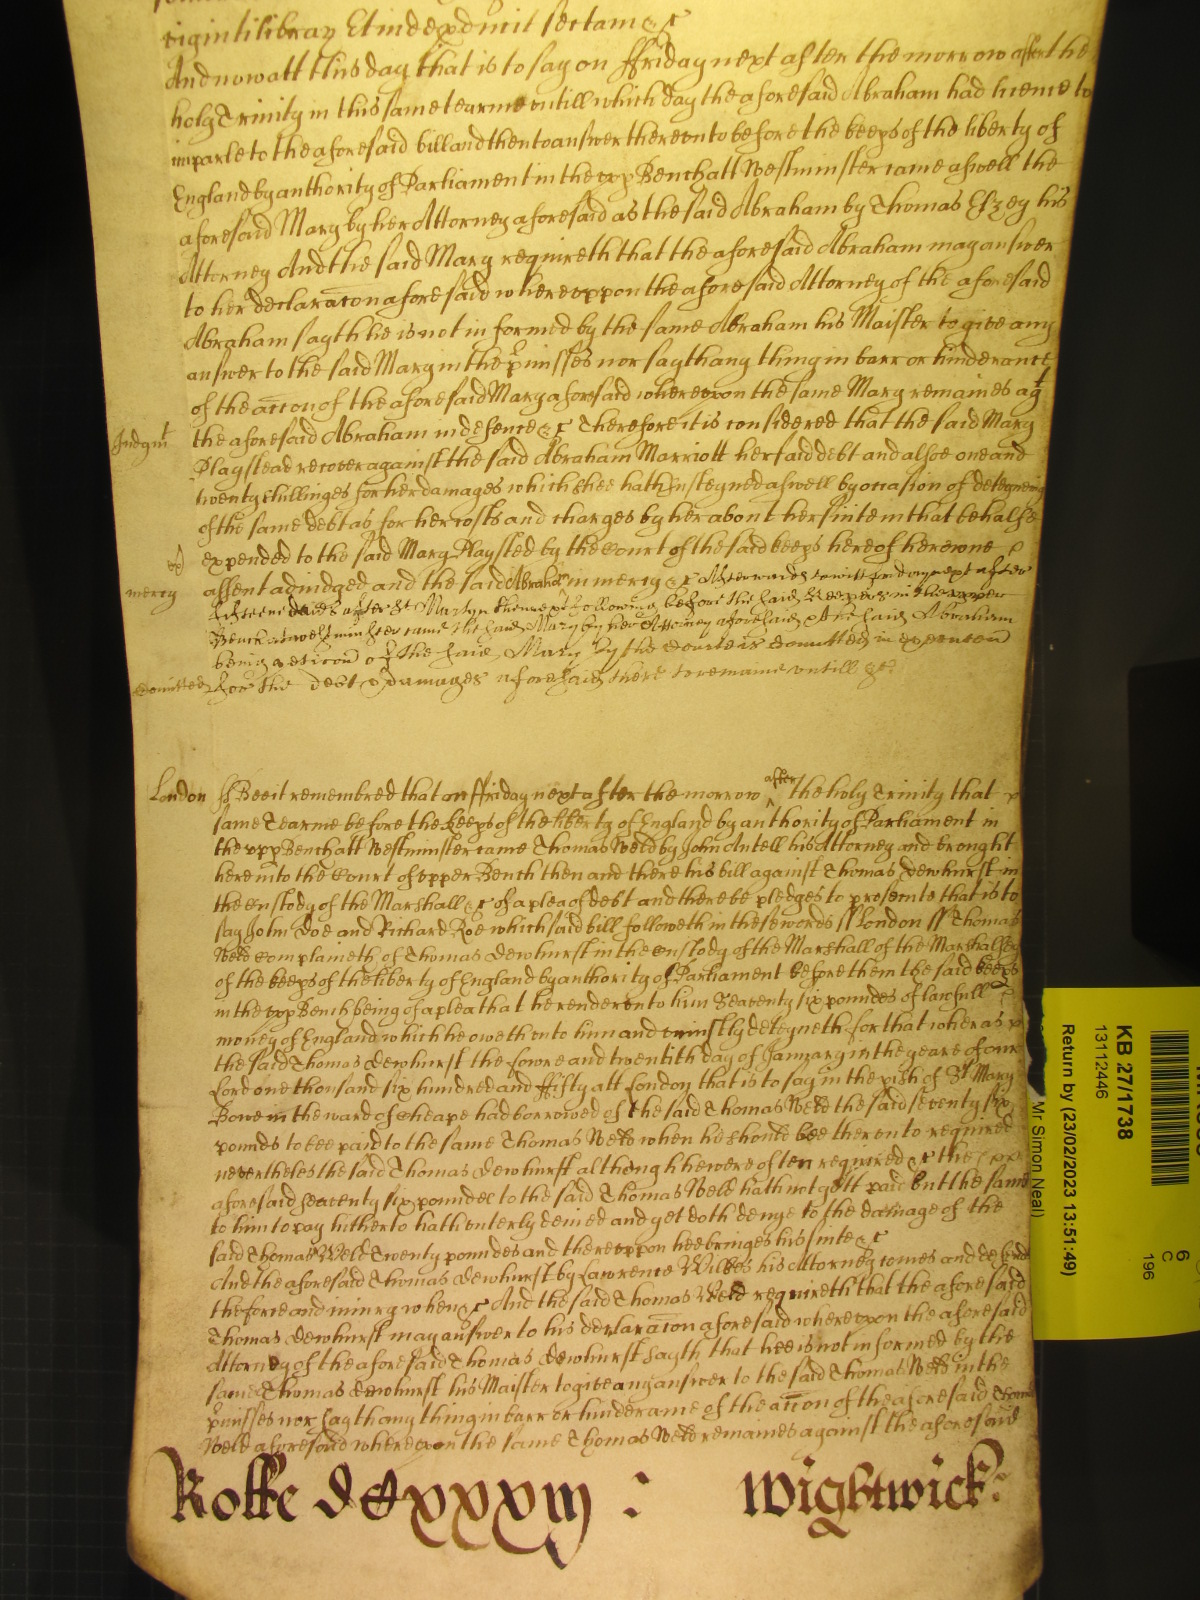 viginti librar Et inde producit sectam &c
And now att this day that is to say on ffriday next after the morrow after the
holy Trinity in this same tearme untill which day the aforesaid Abraham had licence to
imparle to the aforesaid bill and then to answer thereunto before the keeps of the liberty of
England by authority of Parliament in the upp Bench att Westminster came aswell the
aforesaid Mary by her Attorney aforesaid as the said Abraham by Thomas his
Attorney And the said Mary requireth that the aforesaid Abraham may answer
to her declaracon aforesaid whereuppon the aforesaid Attorney of the aforesaid
Abraham sayth he is not informed by the same Abraham his Maister to give any
answer to the said Mary in the pmisses nor sayth any thing in barr or hinderance
of the accon of the aforesaid Mary aforesaid whereupon the same Mary remaines agt
Judgmt the aforesaid Abraham indefence &c Therefore it is considered that the said Mary
Playstead recover against the said Abraham Marriott her said debt and alsoe one and
twenty shillinges for her damages which shee hath susteyned aswell by occasion of deteyneing
of the same debt as for her costs and charges by her about her suite in that behalfe
expended to the said Mary Playsted by the Court of the said keeps here of her owne
mercy assent adiudged and the said Abraham in mercy &c Afterwards to witt friday next after
fifteene daies after St Martyn then next following before the said keepers in the upper
Bench at westminster came the said Mary by her Attorney aforesaid & the said Abraham
being of the said Mary by the Court is comitted in execucon
Comitted for the debt & damages aforesaid there to remaine untill &c
London ss Bee it remembred that on ffriday next after the morrow after the holy Trinity that
same Tearme before the keeps of the liberty of England by authority of Parliament in
the upp Bench att Westminster came Thomas Weld by John Antell his Attorney and brought
here into the Court of upper Bench then and there his bill against Thomas Dewhurst in
the custody of the Marshall &c of a plea of debt and there be pledges to prosecute that is to
say John Doe and Richard Roe which said bill followeth in these words ss London ss Thomas
Weld complaineth of Thomas Dewhurst in the custody of the Marshall of the Marshallsey
of the keeps of the liberty of England by authority of Parliament before them the said keeps
in the upp Bench being of a plea that he render unto him Seaventy six poundes of lawfull
money of England which he oweth unto him and uniustly deteyneth for that wheras
the said Thomas Dewhurst the fowre and twentith day of January in the yeare of our
Lord one thousand six hundred and ffifty att London that is to say in the pish of St Mary
Bowe in the ward of Cheape had borrowed of the said Thomas Weld the said seventy six
pounds to bee paid to the same Thomas Weld when he should bee thereunto required
neverthelesthe said Thomas Dewhurst although he were often required &c the
aforesaid seaventy six poundes to the said Thomas Weld hath not yett paid but the same
to him to pay hitherto hath utterly denied and yet doth denye to the damage of the
said Thomas Weld Twenty poundes and thereuppon hee bringes his suite &c
And the aforesaid Thomas Dewhurst by Lawrence Wilkes his Attorney comes and defends
the force and iniury when &c And the said Thomas Weld requireth that the aforesaid
Thomas Dewhurst may answer to his declaracon aforesaid whereupon the aforesaid
Attorney of the aforesaid Thomas Dewhurst sayth that hee is not informed by the
same Thomas Dewhurst his Maister to give any answer to the said Thomas Weld in the
pmisses nor sayth any thing in barr or hinderance of the accon of the aforesaid Thomas
Weld aforesaid whereupon the same Thomas Weld remaines against the aforesaid
Rolle Wightwick
Return by (23/02/2023 13:51:49)
13112446
KB 27/1738
Mr Simon Neal)
6
C
196